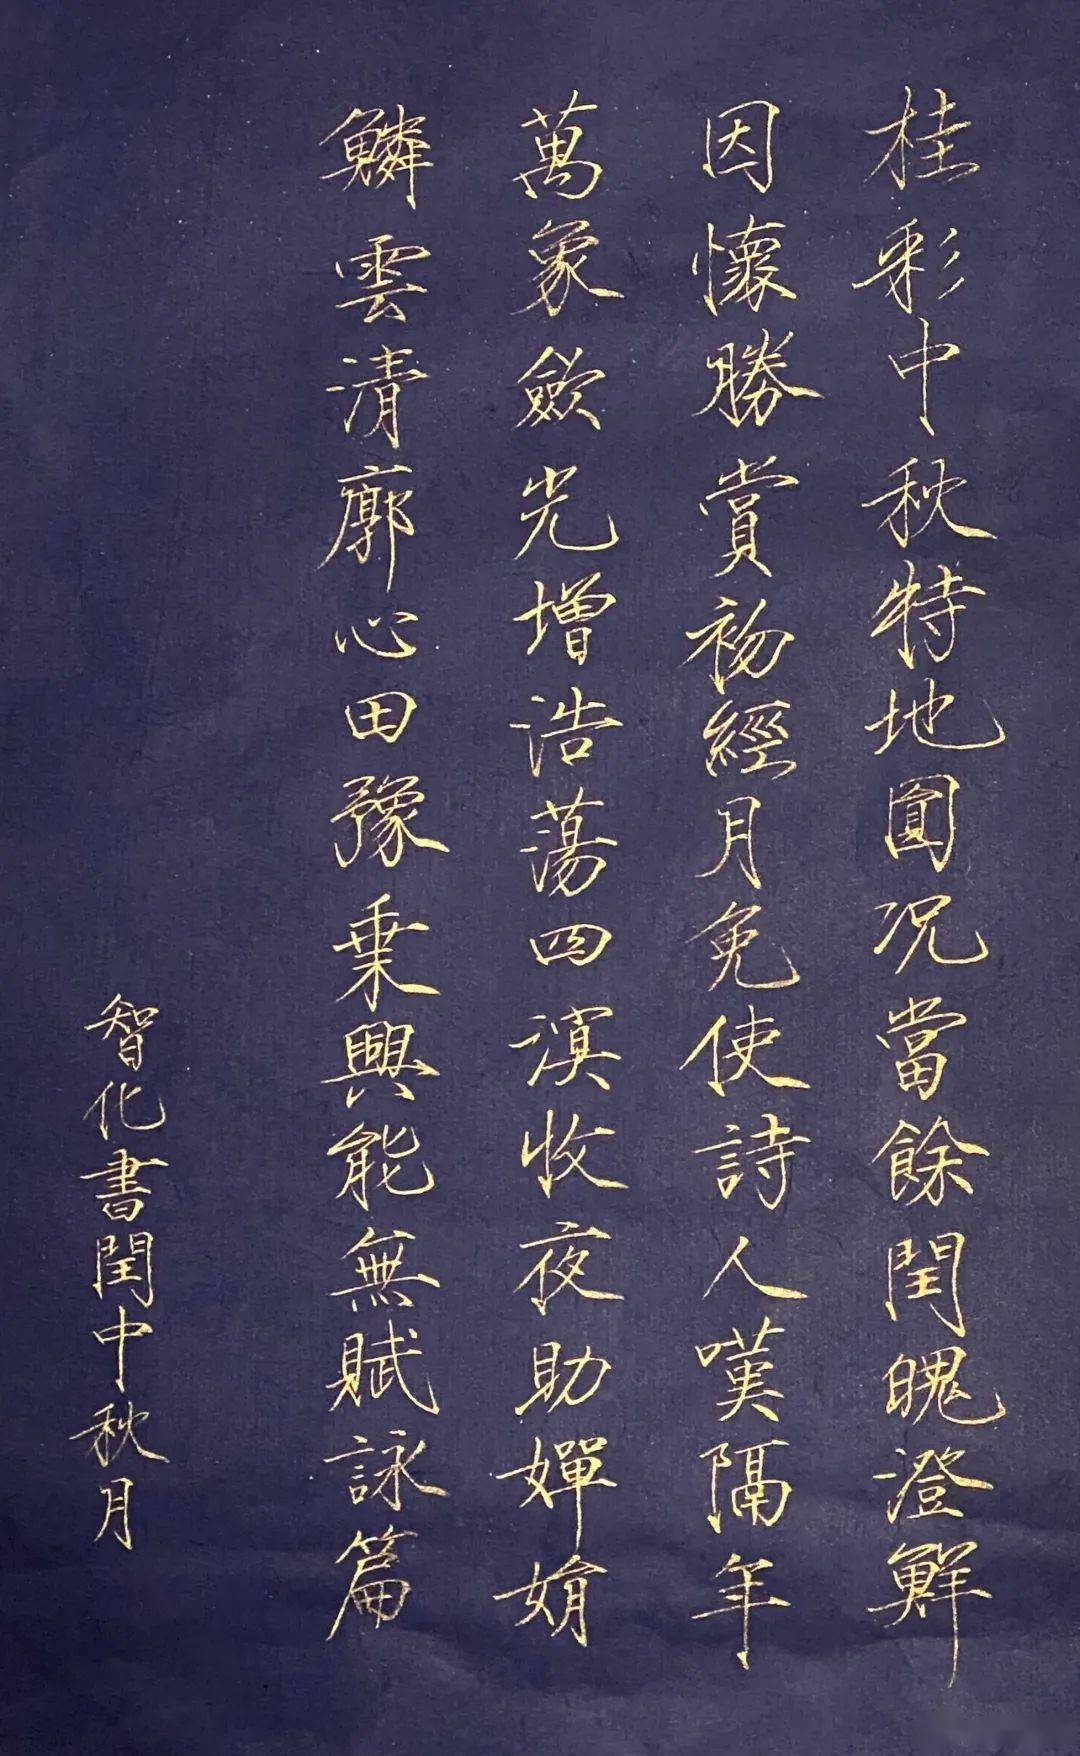 桂彩中秋特地圓況當餘閏魄澄鮮
因懷勝賞初經月免使詩人嘆隔年
萬象斂光增浩蕩四溟收夜助嬋娟
鱗雲清廓心田豫乘興能無賦詠篇
智化書閏中秋月